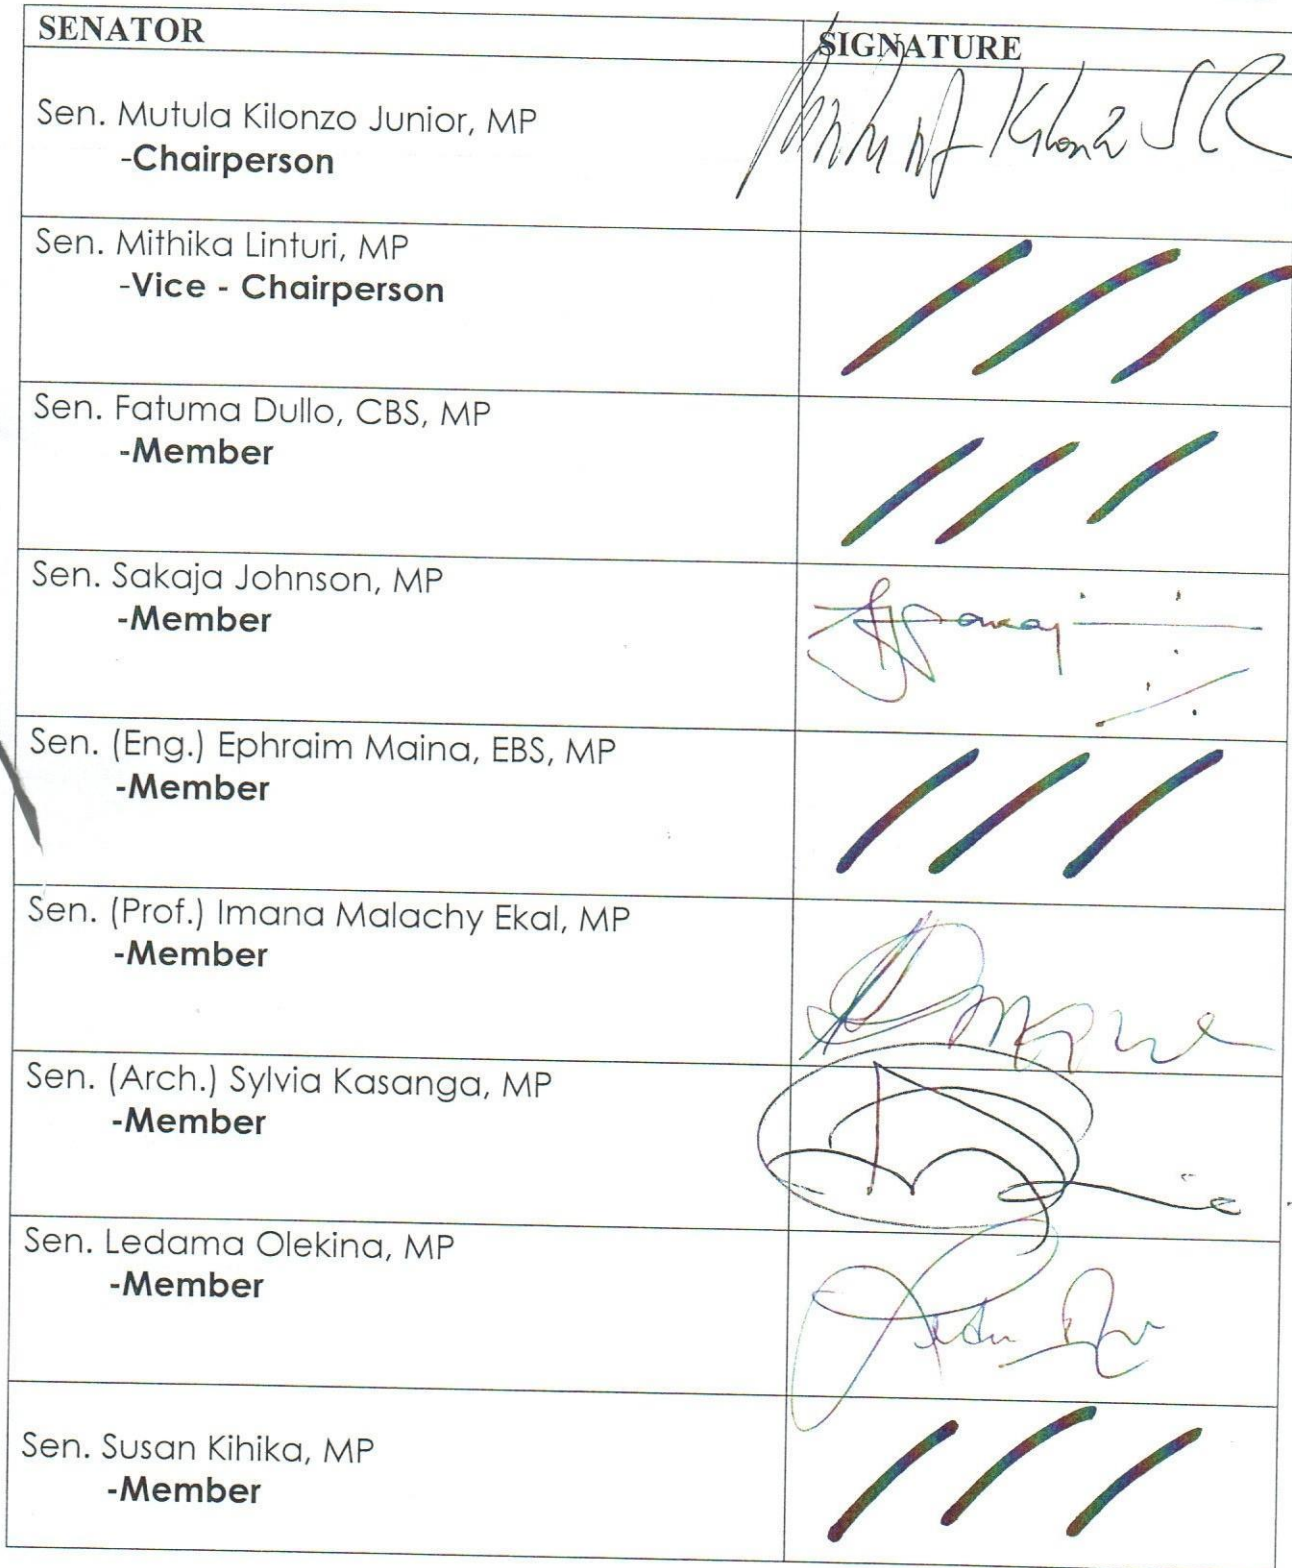 SENATOR SIGNATURE
Sen. Mutula Kilonzo Junior, MP
-Chairperson
Sen. Mithika Linturi, MP
-Vice - Chairperson
Sen. Fatuma Dullo, CBS, MP
-Member
Sen. Sakaja Johnson, MP
-Member
Sen. (Eng.) Ephraim Maina, EBS, MP
-Member
Sen. (Prof.) Imana Malachy Ekal, MP
-Member
Sen. (Arch.) Sylvia Kasanga, MP
-Member
Sen. Ledama Olekina, MP
-Member
Sen. Susan Kihika, MP
-Member